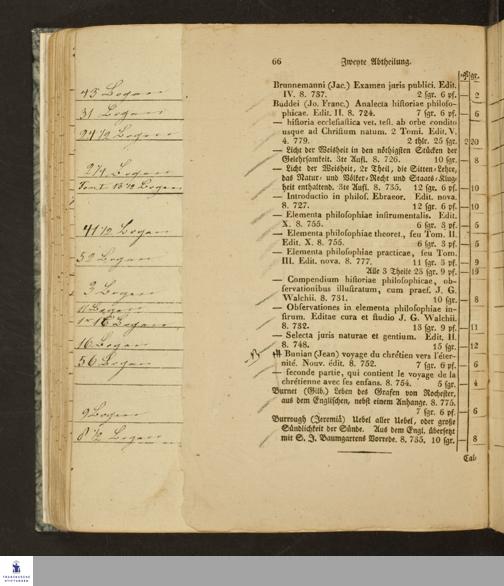 66 Zweyte Abtheilung.
Brunnemanni (Jac.) Examen juris publici. Edit.
IV. 8. 737. 2 sgr. 6 pf. 2
Buddei (Jo. Franc.) Analecta hiſtoriae philoſo-
phicae. Edit. II. 8. 724. 7 sgr. 6 pf. 6
— hiſtoria eccleſiaſtica vet. teſt. ab orbe condito
usque ad Chriſtum natum. 2 Tomi. Edit. V.
4. 779. 2 thlr. 25 sgr. 2 20
— Licht der Weisheit in den nöthigſten Stücken der
Gelehrſamkeit. 3te Aufl. 8. 726. 10 sgr. 8
— Licht der Weisheit, 2r Theil, die Sitten-Lehre,
das Natur- und Völker-Recht und Staats-Klug-
heit enthaltend. 3te Aufl. 8. 735. 12 sgr. 6 pf. 10
— Introductio in philoſ. Ebraeor. Edit. nova.
8. 727. 12 sgr. 6 pf. 10
— Elementa philoſophiae inſtrumentalis. Edit.
X. 8. 755. 6 sgr. 3 pf. 5
— Elementa philoſophiae theoret., ſeu Tom. II.
Edit. X. 8. 755. 6 sgr. 3 pf. 5
— Elementa philoſophiae practicae, ſeu Tom.
III. Edit. nova. 8. 777. 11 sgr. 3 pf. 9
Alle 3 Theile 23 sgr. 9 pf. 19
— Compendium hiſtoriae philoſophicae, ob-
ſervationibus illuſtratum, cum praef. J. G.
Walchii. 8. 731. 10 sgr. 8
— Obſervationes in elementa philoſophiae in-
ſtrum. Editae cura et ſtudio J. G. Walchii.
8. 732. 13 sgr. 9 pf. 11
— Selecta juris naturae et gentium. Edit. II.
8. 748. 15 sgr. 12
Bunian (Jean) voyage du chrétien vers l'éter-
nité. Nouv. édit. 8. 752. 7 sgr. 6 pf. 6
— ſeconde partie, qui contient le voyage de la
chrétienne avec ſes enfans. 8. 754. 5 sgr. 4
Burnet (Gilb.) Leben des Grafen von Rocheſter,
aus dem Engliſchen, nebſt einem Anhange. 8. 775.
7 sgr. 6 pf. 6
Burrough (Jeremiä) Uebel aller Uebel, oder große
Sündlichkeit der Sünde. Aus dem Engl. überſetzt
mit S. J. Baumgartens Vorrede. 8. 735. 10 sgr. 8
Cal-
43 Bogen
31 Bogen
94 1/2 Bogen
27 1/2 Bogen
41 1/2 Bogen
59 Bogen
3 Bogen
11 Bogen
16 Bogen
16 Bogen
56 Bogen
9 Bogen
8 1/2 Bogen
FRANCKESCHE
STIFTUNGEN